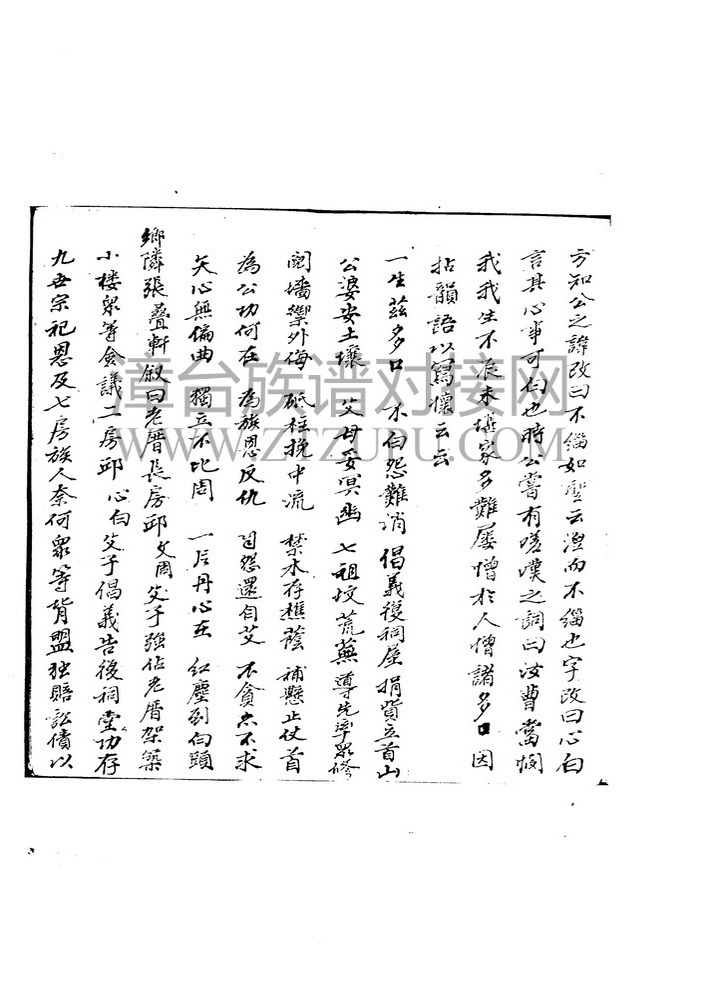 方知公之諱改曰不緇如聖云涅而不緇也字改曰心白
言其心事可白也時公嘗有嗟嘆之詞曰汝曹當憫
我我生不辰未堪家多難屢憎於人憎諸多口因
拈韻語以寫懷云云
一生茲多口 不白怨難消 倡義復祠屋 捐貲立首山
公婆安土壤 父母妥冥幽 七祖墳荒蕪 導先率眾修
鬩墻禦外侮 砥柱挽中流 禁水存樵蔭 補懸止仗首
為公功何在 為族恩反仇 自怨還自艾 不貪亦不求
矢心無偏曲 獨立不比周 一片丹心在 紅塵到白頭
鄉隣張叠軒叙曰老厝長房邱文周父子強佔老厝架築
小樓眾等僉議二房邱心白父子倡義告復祠堂功存
九世宗祀恩及七房族人奈何眾等背盟独賠訟債以
章台族谱对接网
WWW.ZTZUPU.COM